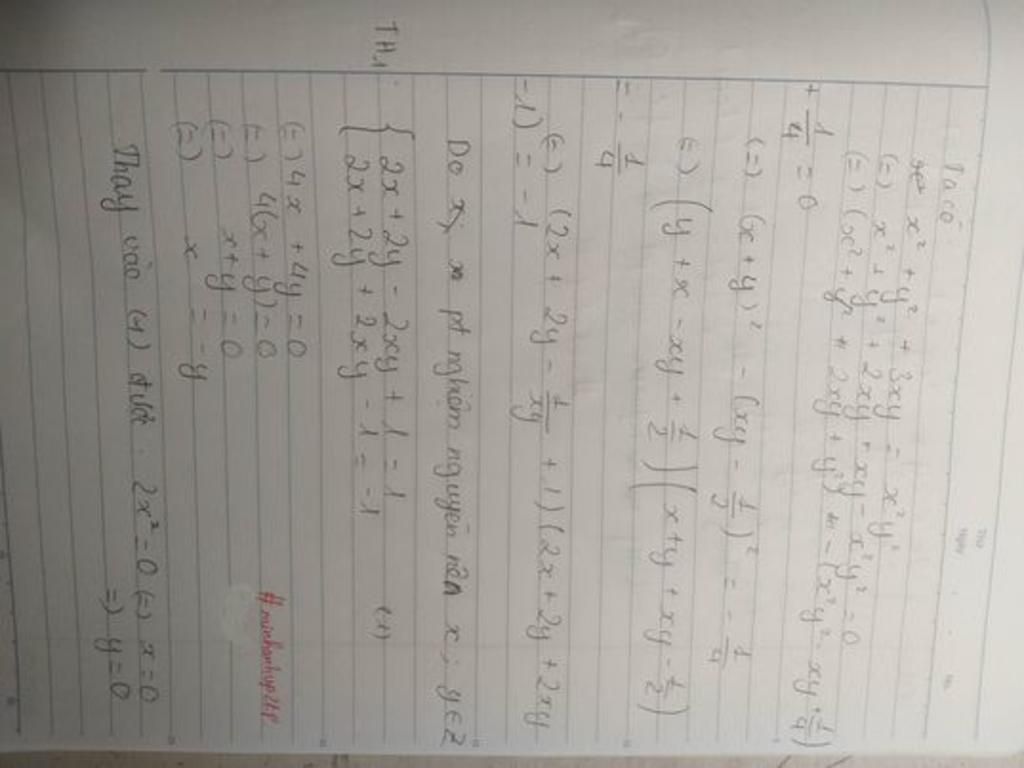 Ta có
x² + y² + 3xy = x²y²
(=) x² + y² + 2xy + xy - x²y² = 0
(=) (x² + y² + 2xy + y²) - (x²y² - xy + 1/4)
+ 1/4 = 0
(=) (x + y)² - (xy - 1/2)² = - 1/4
(=) (y + x - xy + 1/2)(x + y + xy - 1/2)
= - 1/4
(=) (2x + 2y - 1/xy + 1)(2x + 2y + 2xy
- 1) = - 1
Do x; pt nghiệm nguyên nên x; y ∈ Z
TH1: { 2x + 2y - 2xy + 1 = 1
{ 2x + 2y + 2xy - 1 = -1 (1)
(=) 4x + 4y = 0
(=) 4(x + y) = 0
(=) x + y = 0
(=) x = - y
#minhanhvp2k9
Thay vào (1) được: 2x² = 0 (=) x = 0
=) y = 0